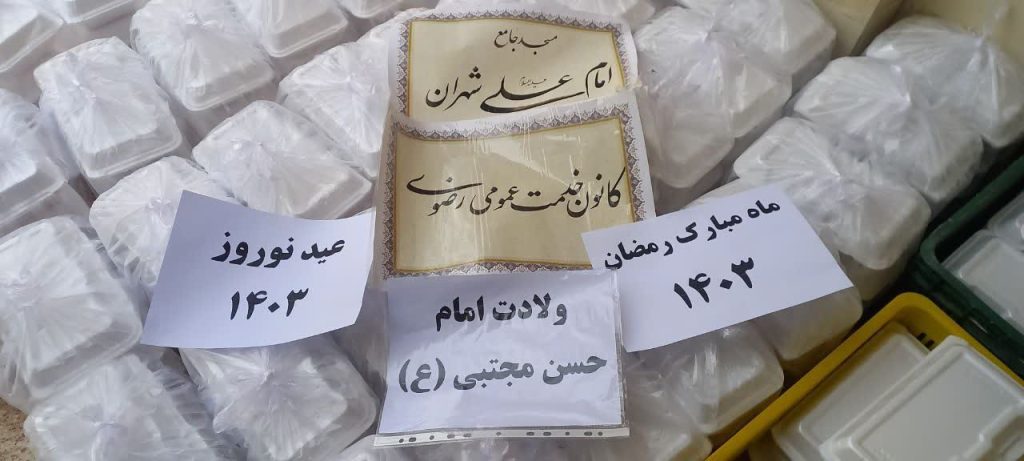 مسجد جامع
امام علی شهران
کانون خدمت عمومی رضوی
عید نوروز
۱۴۰۳
ماه مبارک رمضان
۱۴۰۳
ولادت امام
حسن مجتبی (ع)